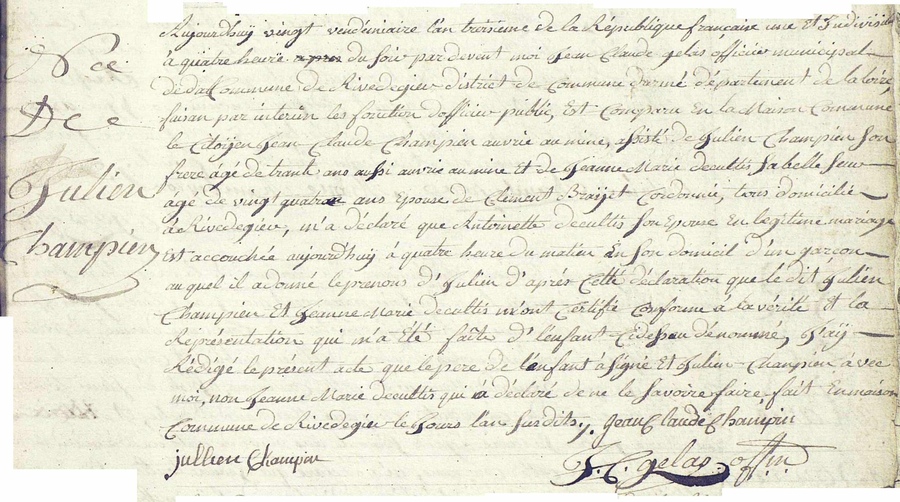 Nce
Dce
Jullien
Champien
Aujourdhuÿ vingt vendemiaire l'an troisieme de la République francaise une Et Indivisible
à quatre heure du soir par devent moi Jean Claude gelas officier municipal
de da Commune de Rivedegier district de Commune d'armé département de la loire,
faisan par interim les fonction d'officier public, Est Comparu En la Maison Commune
le Citoÿen Jean Claude Champien ouvrie au mine, assisté de Julien Champien Son
frere agé de trante ans aussi ouvrie au mine Et de Jeanne Marie decultis sa belle Seur
agé de vingt quatre ans Epouse de Clement Cordonie, tous domicilié
à Rivedegier, m'a déclaré que Antoinette decultis Son Epouse En legitime mariage
Est accouchée aujourdhuÿ à quatre heure du matin En Son domicil d'un garçon
au quel il a donné le prenons d'Julien d'après Cette déclaration que le dit Julien
Champien Et Jeanne Marie decultis m'ont Certifié Conforme à la vérité Et la
Représentation qui m'a Eté faite d'l'enfant Cidessau dénommé, J'aij
Rédigé le présent acte que le pere de l'enfant à Signé Et Julien Champien à vec
moi, non Jeanne Marie decultis qui à déclaré de ne le Savoire faire, fait En maison
Commune de Rivedegier le Jours l'an Susdits, Jean Claude Champin
jullien Champin
J. C. gelas off.m